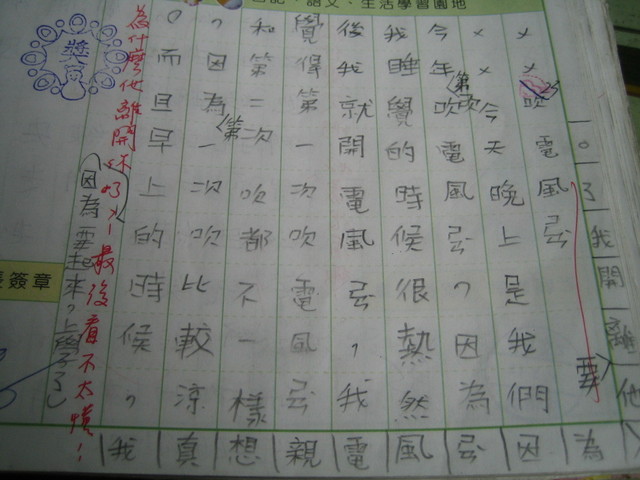 日記、語文、生活學習園地
吹電風ㄕㄢˋ
今天晚上是我們因
今年吹電風ㄕㄢˋ,因為
我睡覺的時候很熱然
後我就開電風ㄕㄢˋ,我
覺得第一次吹電風ㄕㄢˋ
和第二次吹都不一樣
,因為第一次吹比較涼
。而且早上的時候,
我真想親電風ㄕㄢˋ因為
要
他離開我了。
為什麼他離開你了?!最後看不太懂!
因為要起來,上學了
獎
簽章